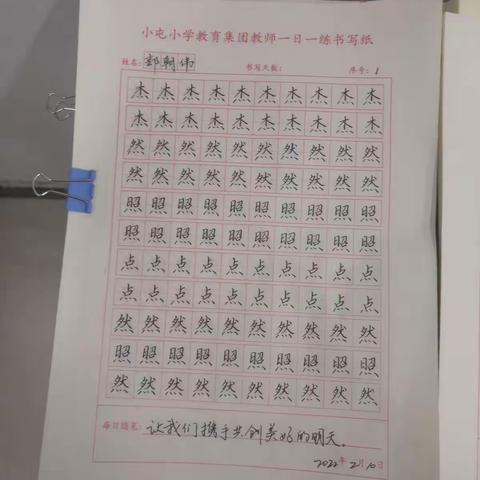 小屯小学教育集团教师一日一练书写纸
姓名: 郭朝伟 书写天数: 序号: 1
杰 杰 杰 杰 杰 杰 杰 杰 杰 杰
杰 杰 杰 杰 杰 杰 杰 杰 杰 杰
然 然 然 然 然 然 然 然 然 然
然 然 然 然 然 然 然 然 然 然
照 照 照 照 照 照 照 照 照 照
照 照 照 照 照 照 照 照 照 照
点 点 点 点 点 点 点 点 点 点
点 点 点 点 点 点 点 点 点 点
然 然 然 然 然 然 然 然 然 然
照 照 照 照 照 照 照 照 照 照
然 然 然 然 然 然 然 然 然 然
每日随笔: 让我们携手共创美好的明天.
2022年2月10日